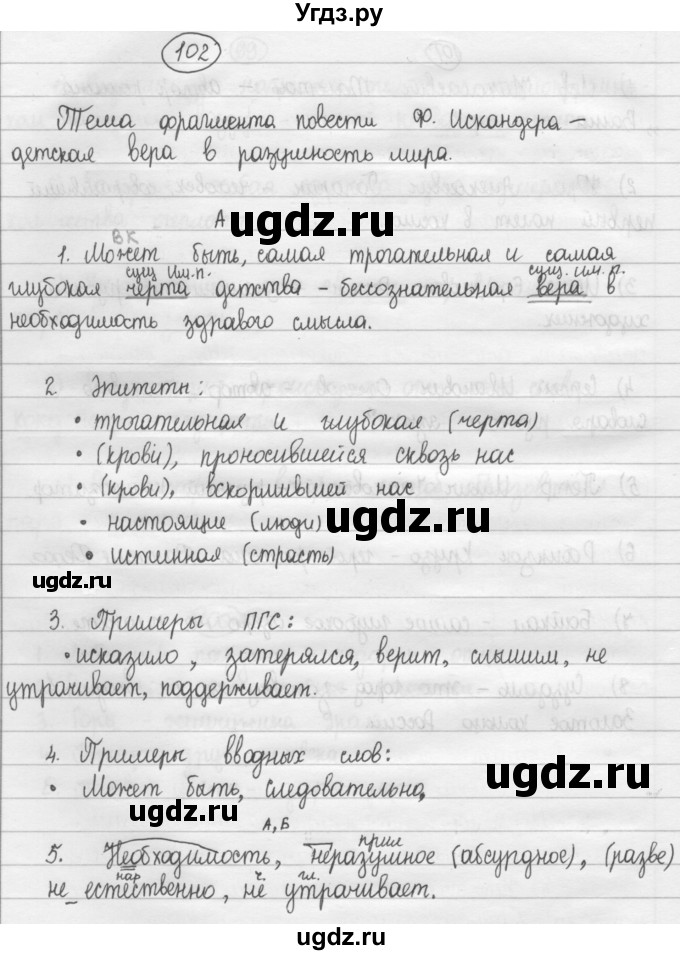 Угдз.ру
102
Тема фрагмента повести Ф. Искандера –
детская вера в разумность мира.
А
ugdz.ru
ВК
1. Может быть, самая трогательная и самая
сущ. им.п. сущ. им. п.
глубокая черта детства – бессознательная вера в
необходимость здравого смысла.
2. Эпитеты:
• трогательная и глубокая (черта)
• (крови), проносившейся сквозь нас
• (крови), вскормившей нас
• настоящие (люди)
ugdz.ru
• истинная (страсть)
ugdz.ru
3. Примеры ПГС:
• исказило, затерялся, верит, слышим, не
утрачивает, поддерживает.
4. Примеры вводных слов:
ugdz.ru
• Может быть, следовательно,
ugdz.ru
А, Б
прил
5. Необходимость, неразумное (абсурдное), (разве)
нар ч. гл.
не естественно, не утрачивает.
ugdz.ru